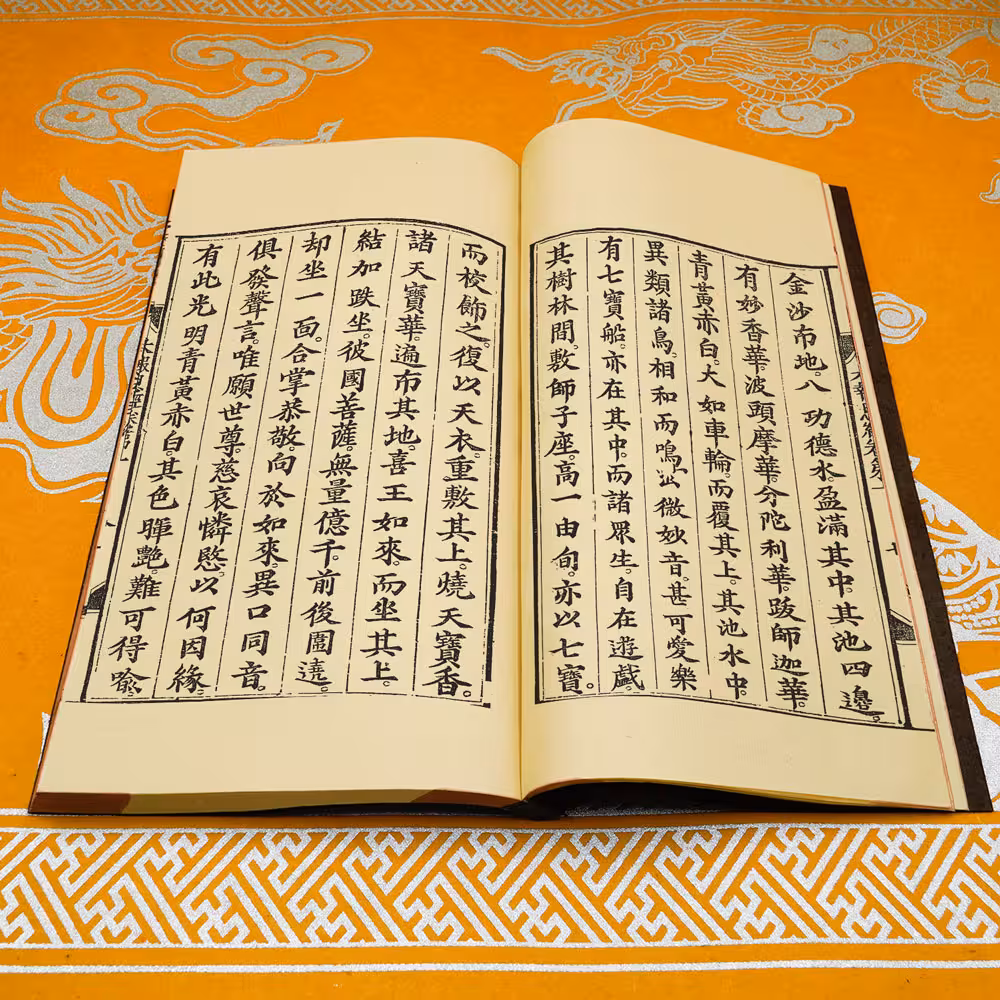 金沙帀地。八功德水。盈滿其中。其池四邊。
有妙香華。波頭摩華。分陀利華。跋師迦華。
青黃赤白。大如車輪。而覆其上。其池水中。
異類諸鳥。相和而鳴。出微妙音。甚可愛樂
有七寶船。亦在其中。而諸眾生。自在遊戲。
其樹林間。敷師子座。高一由旬。亦以七寶。
而校飾之。復以天衣。重敷其上。燒天寶香。
諸天寶華。遍布其地。喜王如來。而坐其上。
結加趺坐。彼國菩薩。無量億千。前後圍遶。
却坐一面。合掌恭敬。向於如來。異口同音。
俱發聲言。唯願世尊。慈哀憐愍。以何因緣。
有此光明青黃赤白。其色暉艷。難可得喻。